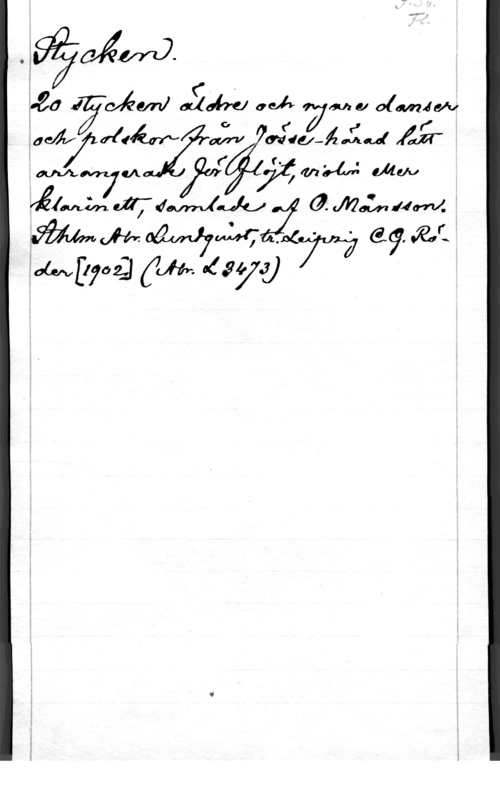 Stycken.
20 stycken äldre och nyare danser
och polskor från Jösse-härad lätt
arrangerade för flöjt, violin eller
klarinett, samlade af O. Månsson.
Sthlm Abr. Lundquist, tr. Leipzig C.G. Rö-
der [1902] (Abr. L 3473)